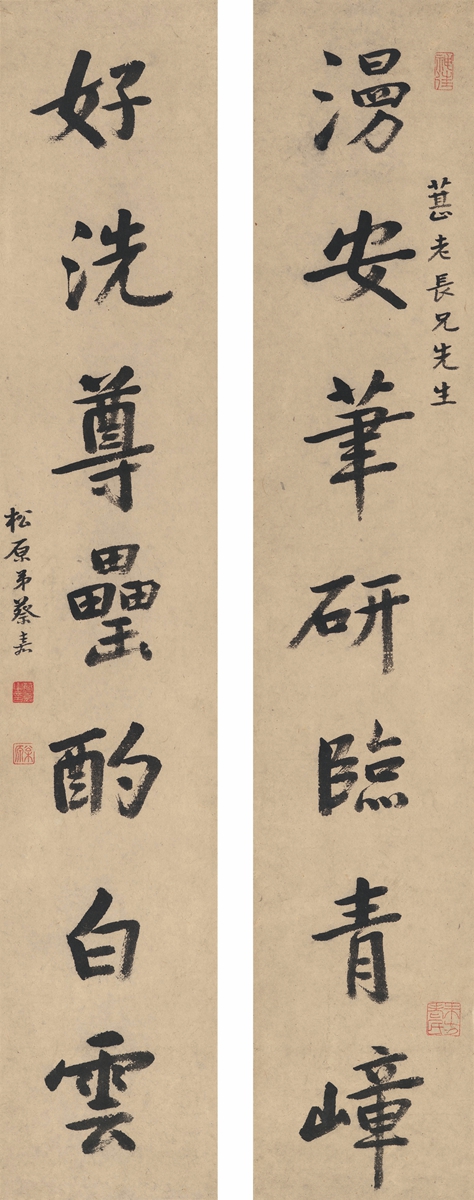 葚老長兄先生
漫安筆研臨青嶂
好洗尊罍酌白雲
松原弟蔡嘉